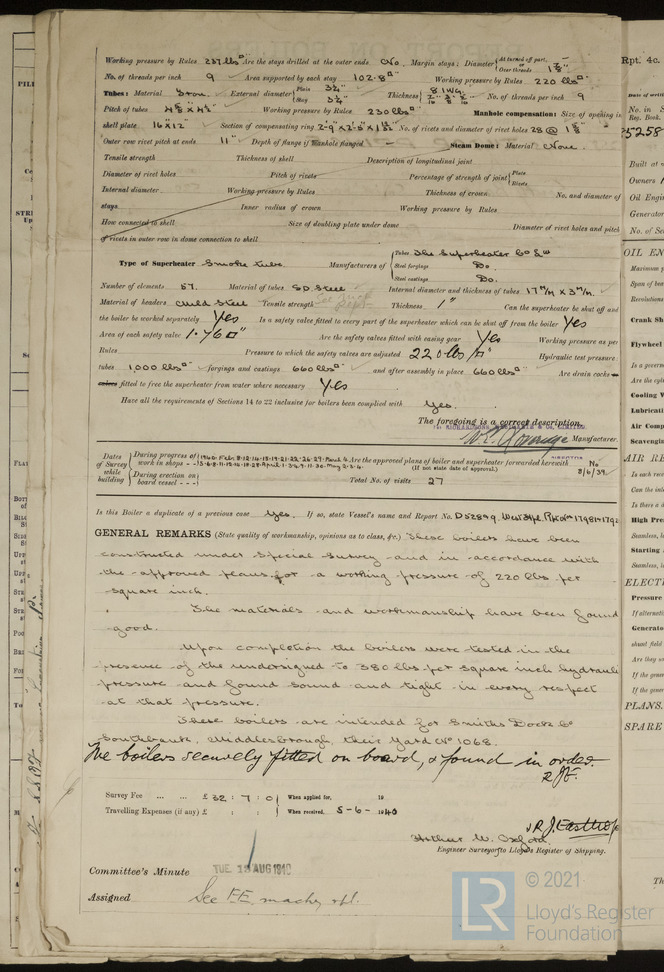 Working pressure by Rules 237 lbs□" Are the stays drilled at the outer ends No. Margin stays: Diameter {At turned off part, or Over threads 1 7/8"
No. of threads per inch 9 Area supported by each stay 102.8□" Working pressure by Rules 220 lbs□"
Tubes: Material Iron. External diameter {Plain 3¼" Stay 3¼" Thickness {8 IWG. No. of threads per inch 9
Pitch of tubes Working pressure by Rules 230 lbs□" Manhole compensation: Size of opening in
shell plate 16"x12" Section of compensating ring No. of rivets and diameter of rivet holes 28 @
Outer row rivet pitch at ends 11" Depth of flange if manhole flanged - Steam Dome: Material None.
Tensile strength Thickness of shell Description of longitudinal joint
Diameter of rivet holes Pitch of rivets Percentage of strength of joint {Plate Rivets
Internal diameter Working pressure by Rules Thickness of crown No. and diameter of
stays Inner radius of crown Working pressure by Rules
How connected to shell Size of doubling plate under dome Diameter of rivet holes and pitch
of rivets in outer row in dome connection to shell
Type of Superheater Smoke tube. Manufacturers of {Tubes The Superheater Co Ld Steel forgings Do. Steel castings Do.
Number of elements 57. Material of tubes SD Steel Internal diameter and thickness of tubes 17 M/m x 3 M/m.
Material of headers Mild Steel Tensile strength Thickness 1" Can the superheater be shut off and
the boiler be worked separately Yes Is a safety valve fitted to every part of the superheater which can be shut off from the boiler Yes
Area of each safety valve 1.76□" Are the safety valves fitted with easing gear Yes Working pressure as per
Rules Pressure to which the safety valves are adjusted 220 lbs/□" Hydraulic test pressure:
tubes 1,000 lbs□" forgings and castings 660 lbs□" and after assembly in place 660 lbs□" Are drain cocks or
valves fitted to free the superheater from water where necessary Yes
Have all the requirements of Sections 14 to 22 inclusive for boilers been complied with Yes.
The foregoing is a correct description,
Manufacturer.
DIRECTOR
Dates of Survey while building {During progress of work in shops - - During erection on board vessel - - -
Are the approved plans of boiler and superheater forwarded herewith No
(If not state date of approval.) 8/6/39.
Total No. of visits 27
Is this Boiler a duplicate of a previous case Yes. If so, state Vessel's name and Report No.
GENERAL REMARKS (State quality of workmanship, opinions as to class, &c.) These boilers have been
constructed under Special Survey and in accordance with
the approved plans for a working pressure of 220 lbs per
square inch.
The materials and workmanship have been found
good.
Upon completion the boilers were tested in the
presence of the undersigned to 380 lbs per square inch hydraulic
pressure and found sound and tight in every respect
at that pressure.
These boilers are intended for Smiths Dock Co
Southbank, Middlesbrough, their Yard No 1068.
The boilers securely fitted on board, & found in order.
R.J.E.
Survey Fee ... ... £ 32 : 7 : 0 When applied for, 19
Travelling Expenses (if any) £ : : When received, 5-6-1940
R.J. Easthope
Arthur W. Oxford.
Engineer Surveyors to Lloyd's Register of Shipping.
Committee's Minute TUE. 13 AUG 1940
Assigned See F.E. machy rpt.
© 2021
LR
Lloyd's Register
Foundation
Rpt. 4c.
Date of writing
No. in S
Reg. Book.
Built at
Owners
Oil Engin
Generator
No. of Se
OIL EN
Maximum p
Span of bea
Revolutions
Crank Sh
Flywheel
Is a govern
Are the cyl
Cooling W
Lubricati
Air Comp
Scavengin
AIR RE
Is each rece
Can the inte
Is there a d
High Pre
Seamless, l
Starting
Seamless, l
ELECT
Pressure
If alternati
Generato
Are they
If the gene
If the gene
PLANS.
SPARE
Th